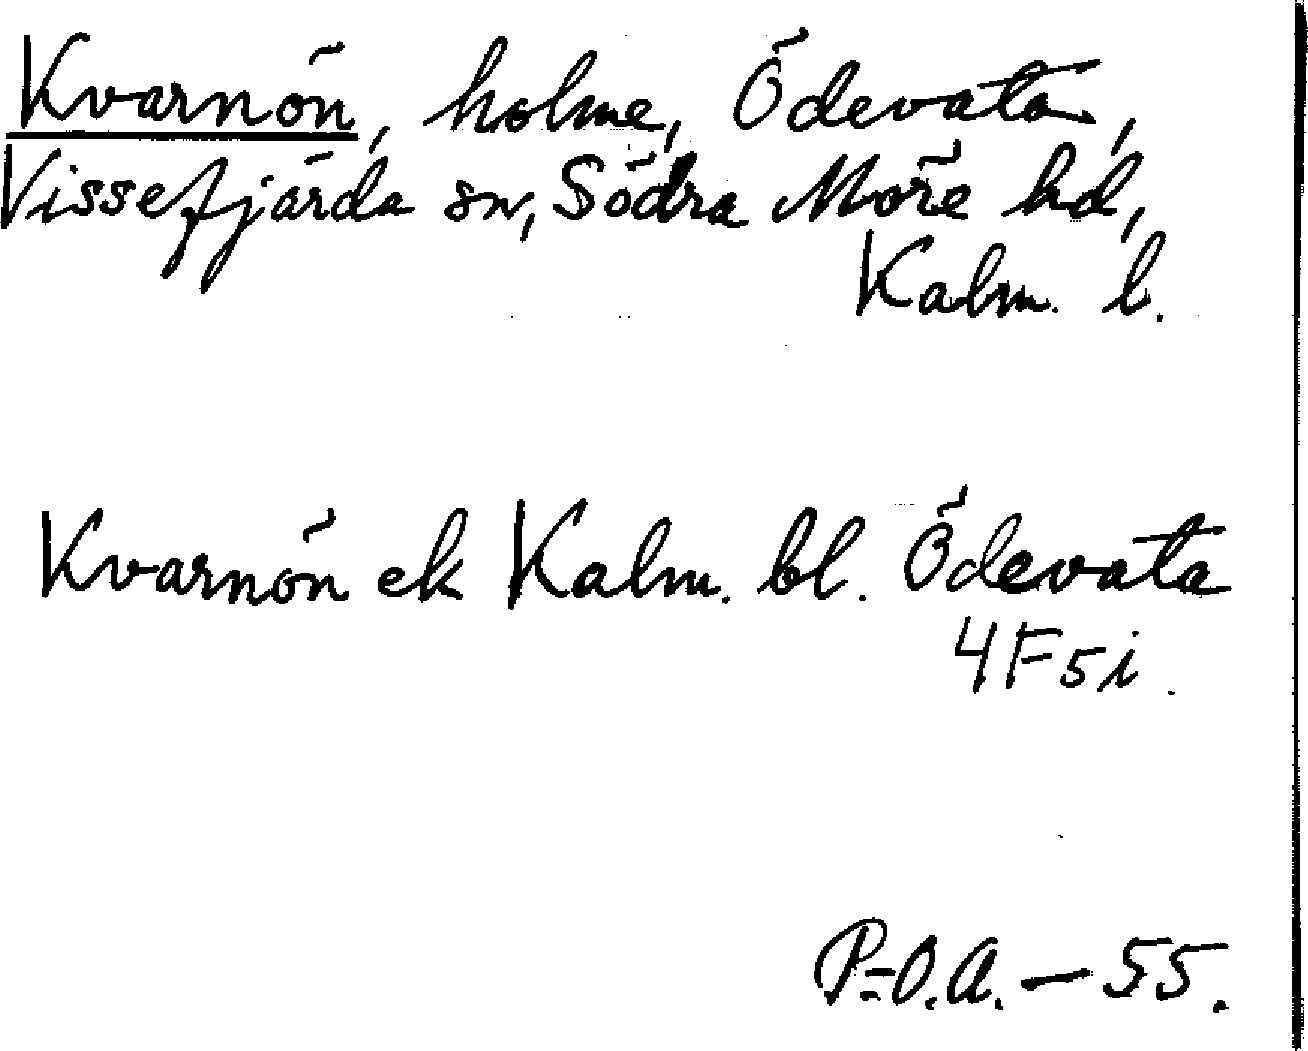 Kvarnön, holme, Ödevata,
Vissefjärda sn, Södra Möre hd,
Kalm. l.
Kvarnön ek Kalm. bl. Ödevata
4F5i.
P-O.A. – 55.